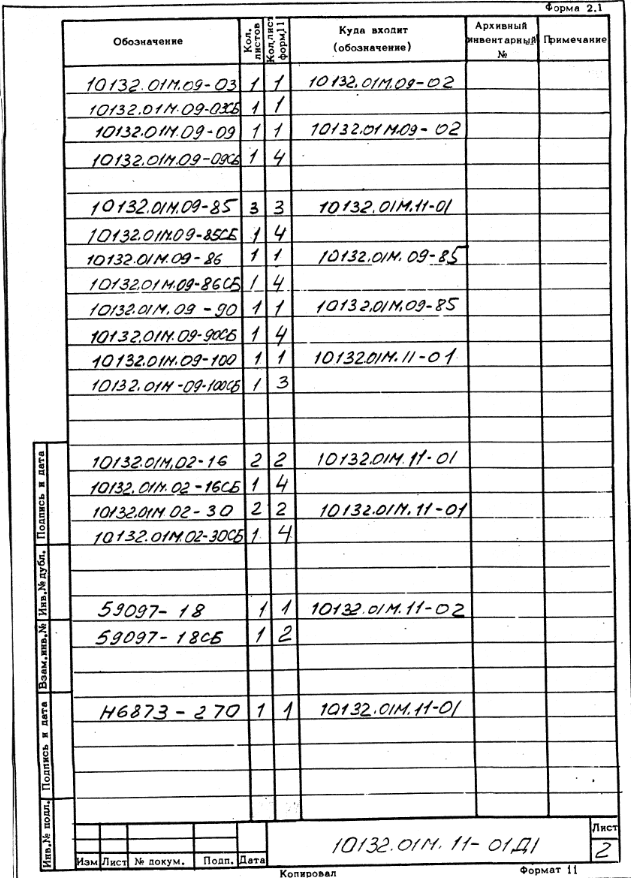 Форма 2.1
Обозначение Кол. листов Кол.лист форм.11 Куда входит (обозначение) Архивный инвентарный № Примечание
10132.01М.09-03 1 1 10132.01М.09-02
10132.01М.09-03СБ 1 1
10132.01М.09-09 1 1 10132.01М.09-02
10132.01М.09-09СБ 1 4
10132.01М.09-85 3 3 10132.01М.11-01
10132.01М.09-85СБ 1 4
10132.01М.09-86 1 1 10132.01М.09-85
10132.01М.09-86СБ 1 4
10132.01М.09-90 1 1 10132.01М.09-85
10132.01М.09-90СБ 1 4
10132.01М.09-100 1 1 10132.01М.11-01
10132.01М-09-100СБ 1 3
10132.01М.02-16 2 2 10132.01М.11-01
10132.01М.02-16СБ 1 4
10132.01М.02-30 2 2 10132.01М.11-01
10132.01М.02-30СБ 1 4
59097-18 1 1 10132.01М.11-02
59097-18СБ 1 2
Н6873-270 1 1 10132.01М.11-01
Подпись и дата
Инв.№ дубл.
Взам.инв.№
Подпись и дата
Инв.№ подл.
10132.01М.11-01Д1
Лист
2
Изм Лист № докум. Подп. Дата
Копировал Формат 11